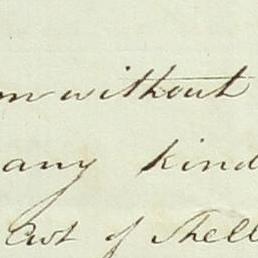 m without
any kind
of Shell